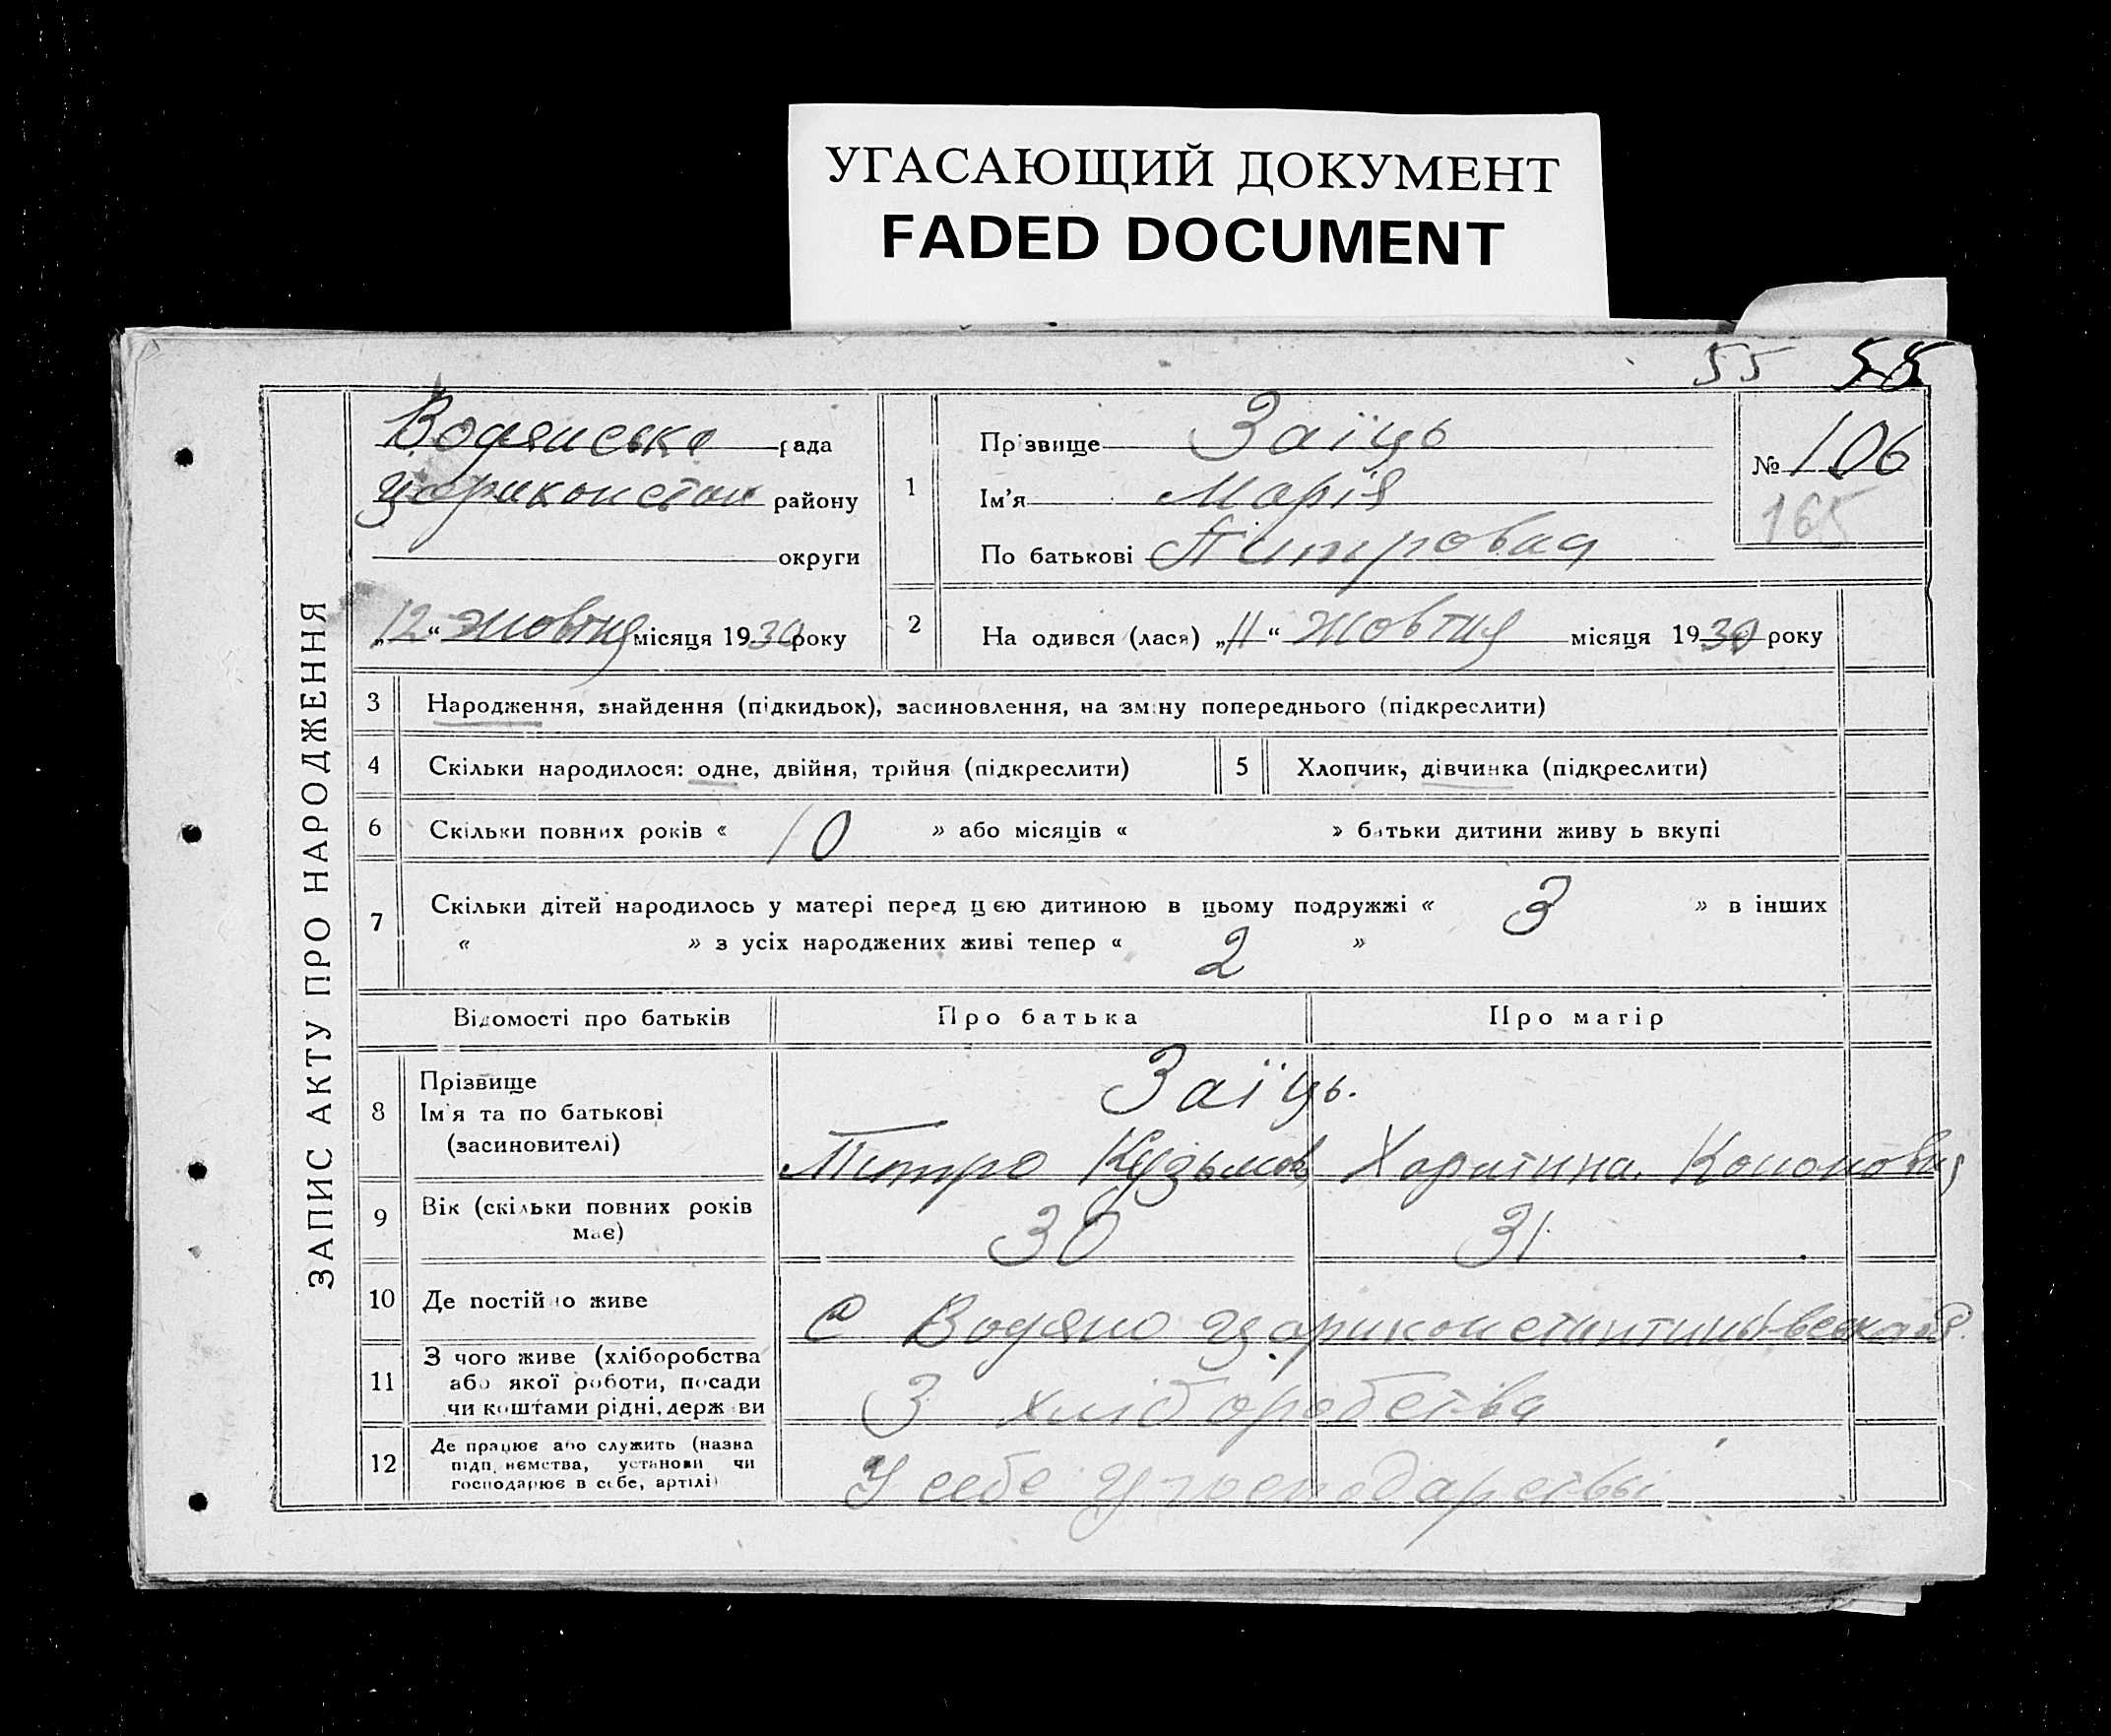 УГАСАЮЩИЙ ДОКУМЕНТ
FADED DOCUMENT
55 55
ЗАПИС АКТУ ПРО НАРОДЖЕННЯ
Водянська рада
Цариконстан району
округи
„12“ жовтня місяця 1930 року
1
Прізвище Заїць
Ім'я Марія
По батькові Питровна
№ 106
165
2 На одився (лася) „11“ жовтня місяця 1930 року
3 Народження, знайдення (підкидьок), засиновлення, на зміну попереднього (підкреслити)
4 Скільки народилося: одне, двійня, трійня (підкреслити) 5 Хлопчик, дівчинка (підкреслити)
6 Скільки повних років « 10 » або місяців « » батьки дитини живу ь вкупі
7 Скільки дітей народилось у матері перед цією дитиною в цьому подружжі « 3 » в інших
« » з усіх народжених живі тепер « 2 »
Відомості про батьків Про батька Про матір
8 Прізвище
Ім'я та по батькові
(засиновителі)
Заїць.
Питро Кузьмов Харитина. Кононовна
9 Вік (скільки повних років має) 30 31
10 Де постійно живе с Водяно Цариконстинтиновська
11 З чого живе (хліборобства
або якої роботи, посади
чи коштами рідні, держави
З хліборобства
12 Де працює або служить (назва
підп, иємства, установи чи
господарює в себе, артілі)
У себе У господарстві